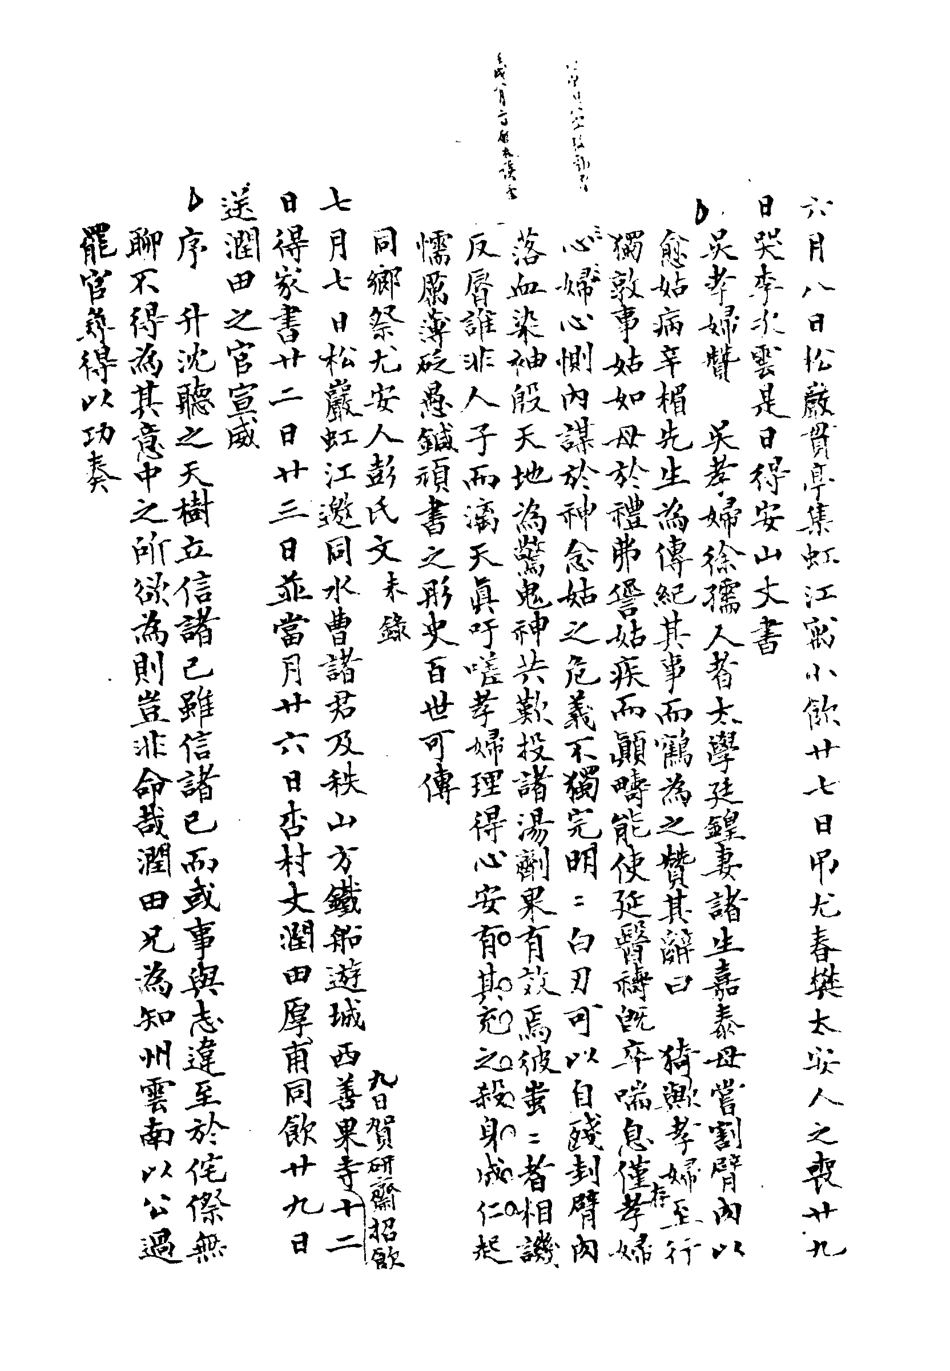 六月八日松巖貫亭集虹江寓小飲廿七日弔尤春樊太安人之喪廿九
日哭李次雲是日得安山丈書
吳孝婦贊　吳孝婦徐孺人者太學廷鍠妻諸生嘉泰母嘗割臂肉以
愈姑病辛楣先生為傳紀其事而鶴為之贊其辭曰　猗歟孝婦至行
獨敦事姑如母於禮弗諐姑疾而顛疇能使延醫禱旣卒喘息僅存孝婦
心婦心惻內謀於神念姑之危義不獨完明〻白刃可以自殘刲臂肉
落血染袖殷天地為驚鬼神共歎投諸湯劑果有效焉彼蚩〻者相譏
反脣誰非人子而漓天真吁嗟孝婦理得心安有其充之殺身成仁起
懦屬薄砭愚鍼頑書之彤史百世可傳
同鄉祭尤安人彭氏文未錄
九日賀研齋招飲
七月七日松巖虹江邀同水曹諸君及秩山方鐵船遊城西善果寺十二
日得家書廿二日廿三日並當月廿六日杏村丈潤田厚甫同飲廿九日
送潤田之官宣威
序　升沈聽之天樹立信諸己雖信諸己而或事與志違至於侘傺無
聊不得為其意中之所欲為則豈非命哉潤田兄為知州雲南以公過
罷官尋得以功奏